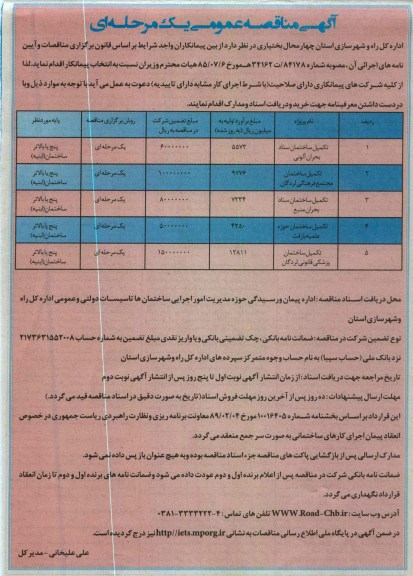 آگهی مناقصه عمومی یک مرحله‌ای
اداره کل راه و شهرسازی استان چهارمحال بختیاری در نظر دارد از بین پیمانکاران واجد شرایط بر اساس قانون برگزاری مناقصات و آیین
نامه های اجرائی آن، مصوبه شماره ۸۴۱۷۸/ت ۳۳۱۶۲ه مورخ ۸۵/۰۷/۶ هیات محترم وزیران نسبت به انتخاب پیمانکار اقدام نماید. لذا
از کلیه شرکت های پیمانکاری دارای صلاحیت (با شرط اجرای کار مشابه دارای تاییدیه) دعوت به عمل می آید با توجه به موارد ذیل و با
در دست داشتن معرفینامه جهت خرید و دریافت اسناد و مدارک اقدام نمایند.
ردیف نام پروژه مبلغ برآورد اولیه به میلیون ریال (به روز شده) مبلغ تضمین شرکت در مناقصه به ریال روش برگزاری مناقصه پایه مورد نظر
۱ تکمیل ساختمان ستاد بحران آلونی ۵۵۷۳ ۶۰۰۰۰۰۰۰ یک مرحله ای پنج یا بالاتر ساختمان (ابنیه)
۲ تکمیل ساختمان مجتمع فرهنگی لردگان ۹۷۷۶ ۱۰۰۰۰۰۰۰۰ یک مرحله ای پنج یا بالاتر ساختمان (ابنیه)
۳ تکمیل ساختمان ستاد بحران منج ۷۲۳۴ ۸۰۰۰۰۰۰۰ یک مرحله ای پنج یا بالاتر ساختمان (ابنیه)
۴ تکمیل ساختمان حوزه علمیه بازفت ۴۲۵۰ ۵۰۰۰۰۰۰۰ یک مرحله ای پنج یا بالاتر ساختمان (ابنیه)
۵ تکمیل ساختمان پزشکی قانونی لردگان ۱۲۸۱۱ ۱۵۰۰۰۰۰۰۰ یک مرحله ای پنج یا بالاتر ساختمان (ابنیه)
محل دریافت اسناد مناقصه: اداره پیمان و رسیدگی حوزه مدیریت امور اجرایی ساختمان ها تاسیسات دولتی و عمومی اداره کل راه
وشهرسازی استان
نوع تضمین شرکت در مناقصه: ضمانت نامه بانکی، چک تضمینی بانکی و یا واریز نقدی مبلغ تضمین به شماره حساب ۲۱۷۳۶۳۱۵۵۲۰۰۸
نزد بانک ملی (حساب سیبا) به نام حساب وجوه متمرکز سپرده های اداره کل راه وشهرسازی استان
تاریخ مراجعه جهت دریافت اسناد: از زمان انتشار آگهی نوبت اول تا پنج روز پس از انتشار آگهی نوبت دوم
مهلت ارسال پیشنهادات: ده روز پس از آخرین روز مهلت فروش اسناد (تاریخ به صورت دقیق در اسناد مناقصه قید می گردد.)
این قرارداد بر اساس بخشنامه شماره ۱۰۰۱۶۴۰۵ مورخ ۸۹/۰۲/۰۴ معاونت برنامه ریزی ونظارت راهبردی ریاست جمهوری در خصوص
انعقاد پیمان اجرای کارهای ساختمانی به صورت سر جمع منعقد می گردد.
مدارک ارسالی پس از بازگشایی پاکت های مناقصه جزء اسناد مناقصه بوده و به هیچ عنوان باز پس داده نمی شود.
ضمانت نامه بانکی شرکت در مناقصه پس از اعلام برنده اول و دوم عودت داده می شود وضمانت نامه های برنده اول و دوم تا زمان انعقاد
قرارداد نگهداری می گردد.
آدرس وب سایت: WWW.Road-Chb.ir تلفن های تماس: ۴-۳۳۳۴۲۲۲-۰۳۸۱
در ضمن آگهی در پایگاه ملی اطلاع رسانی مناقصات به نشانی http://iets.mporg.ir نیز درج گردیده است.
علی علیخانی - مدیر کل